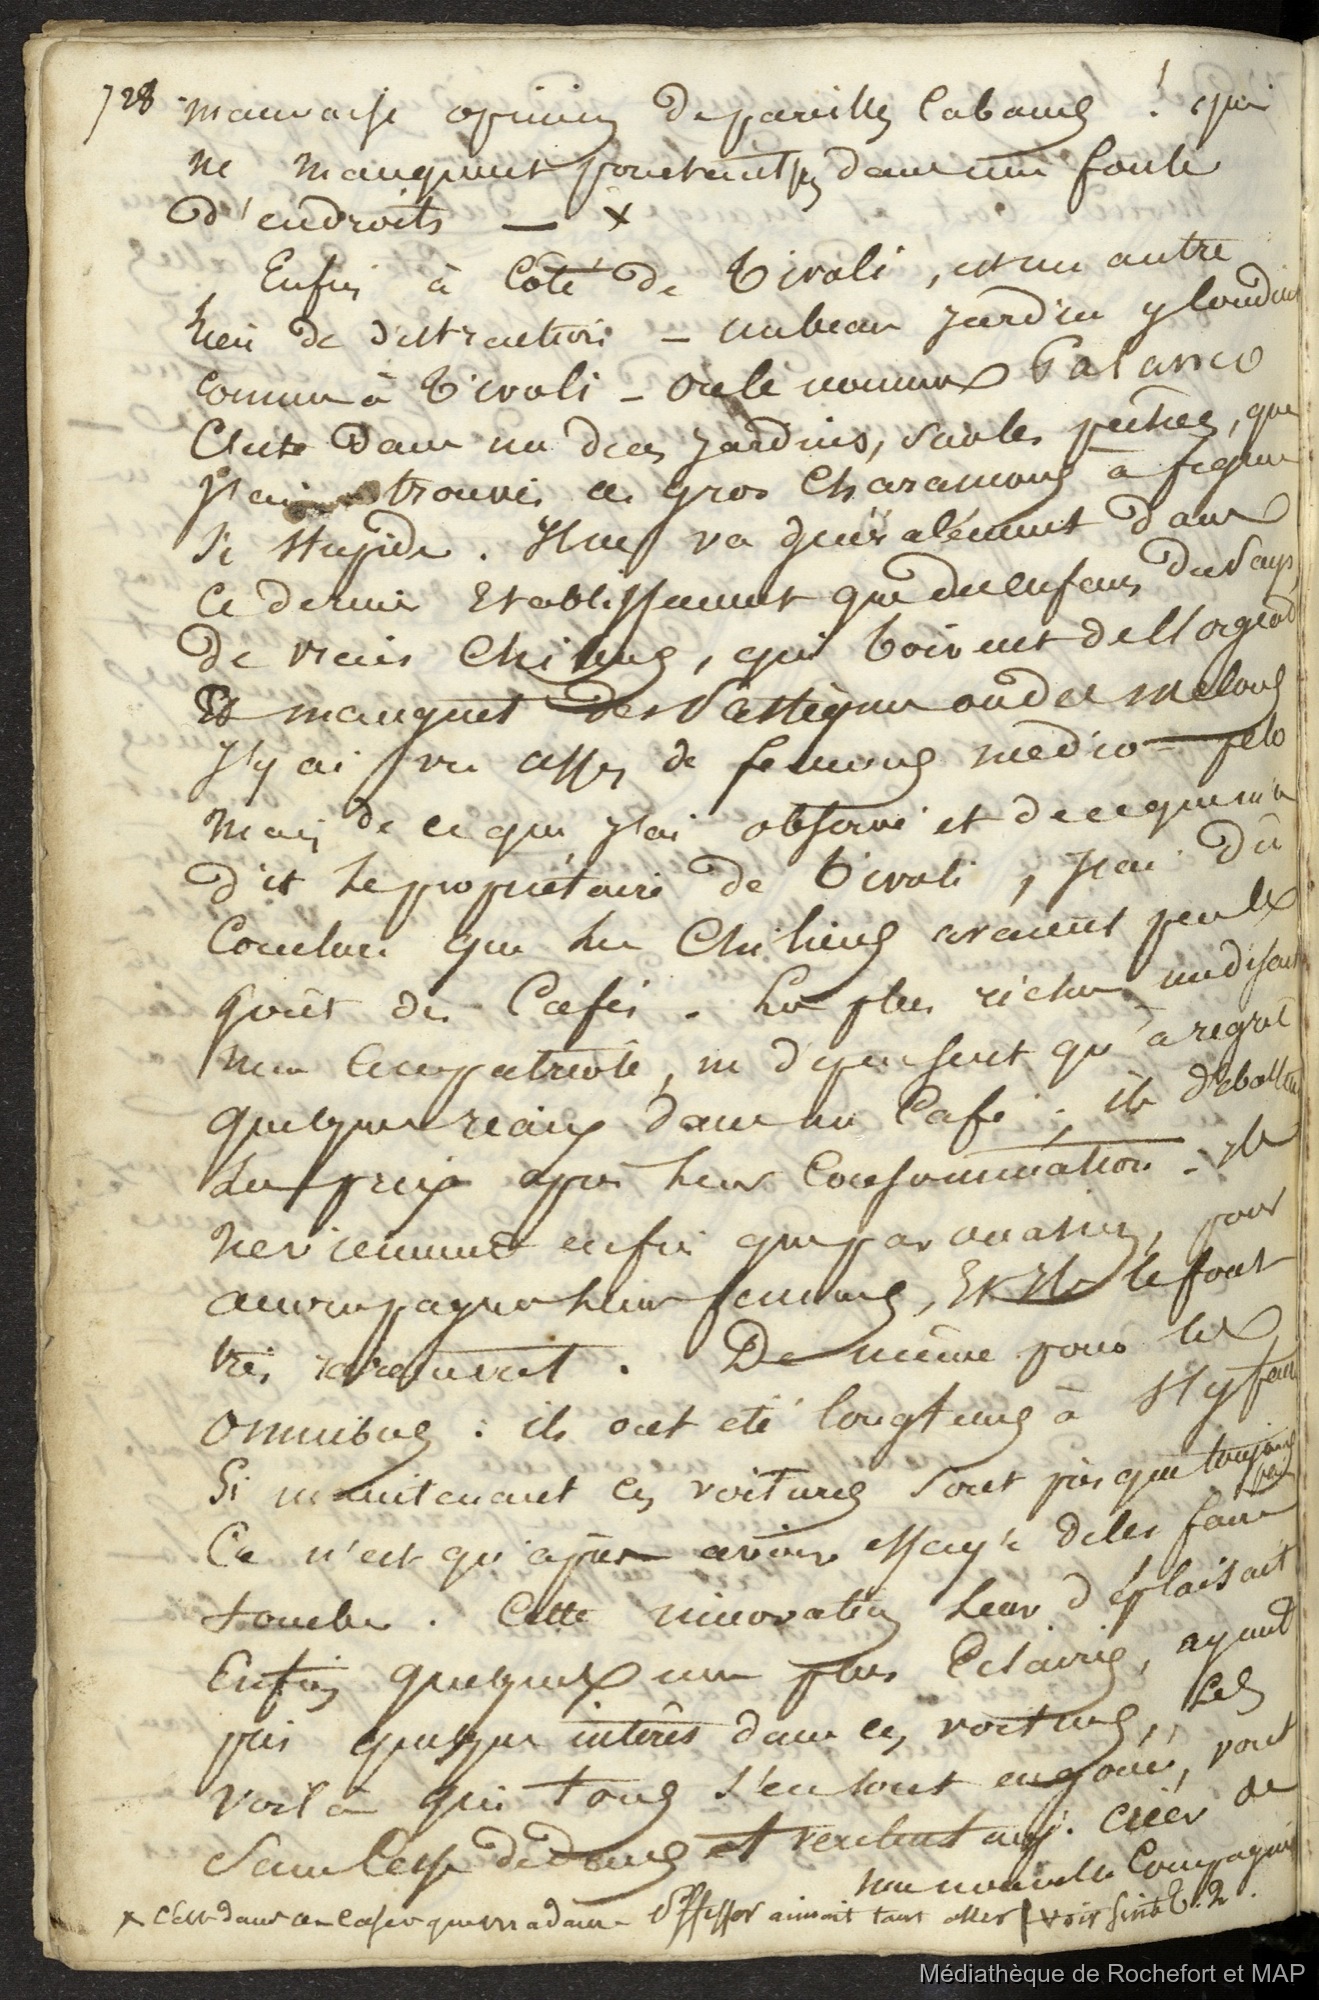 728 mauvaise opinion de pareilles cabanes ! qui
ne manquent pourtant pas dans une foule
d'endroits — x
Enfin à côté de Tivoli, est un autre
lieu de distraction — un beau jardin y conduit
comme à Tivoli — on le nomme
C'est dans un des jardins, sous les pêches, que
j'ai trouvé ces gros Charansons à figure
si stupide. Il ne va généralement dans
ce dernier Etablissement que des enfans du Pays
de vrais Chiliens, qui boivent de l'orgeat
Et mangent des Pastèques ou des melons
J'y ai vu assez de femmes medio — pelo
Mais de ce que j'ai observé et de ce que m'a
dit le propriétaire de Tivoli, j'ai dû
Conclure que les Chiliens avaient peu le
goût des Cafés. Les plus riches me disait
mon Compatriote, ne dépensent qu'à regret
quelques réaux dans un Café ; ils débattent
les prix après leur Consommation : ils
ne viennent enfin que par, pour
accompagner leurs femmes, Et Ils le font
très rarement. De même pour les
Omnibus : ils ont été longtems à s'y faire
Si maintenant ces voitures sont presque toujours
Ce n'est qu'après avoir essayé de les faire
tomber. Cette innovation leur déplaisait
Enfin quelques uns plus Eclairés, ayant
pris quelque intérêt dans ces voitures, Les
voilà qui tous s'en sont engoués, vont
Sans Cesse dedans et veulent auj. créer
une nouvelle Compagnie
x C'est dans ce café que madame aimait tant aller | voir Suite T. 2.
Médiathèque de Rochefort et MAP